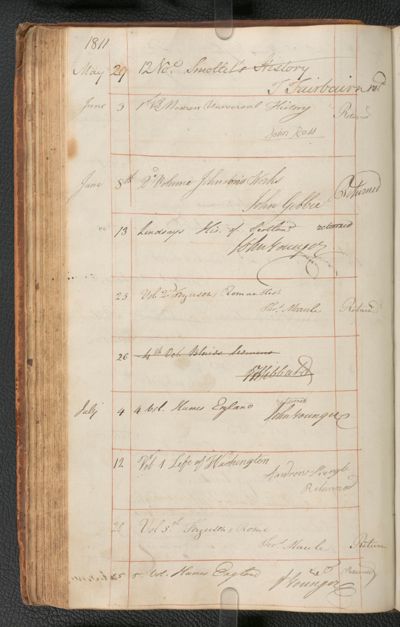 1811
May 29 12 No. Smollet's History
T Fairbairn retd
June 3 1st B Modern Universal History
John Ross Retnd
June 8th 2d Volume Johnsons Works
John Gebbie Returned
13 Lindsays His. of Scotland returned
John Younger
23 Vol 2d Ferguson's Roman Hist
Thos. Maule Retnd
26 4th Vol Blairs Sermons
July 4 4 Vol. Humes England returned
John Younger
12 Vol 1 Life of Washington
Andrew
Returned
Vol 3rd Ferguson's Rome
Thos. Maule Return
25 5 Vol. Humes England returned
J Younger